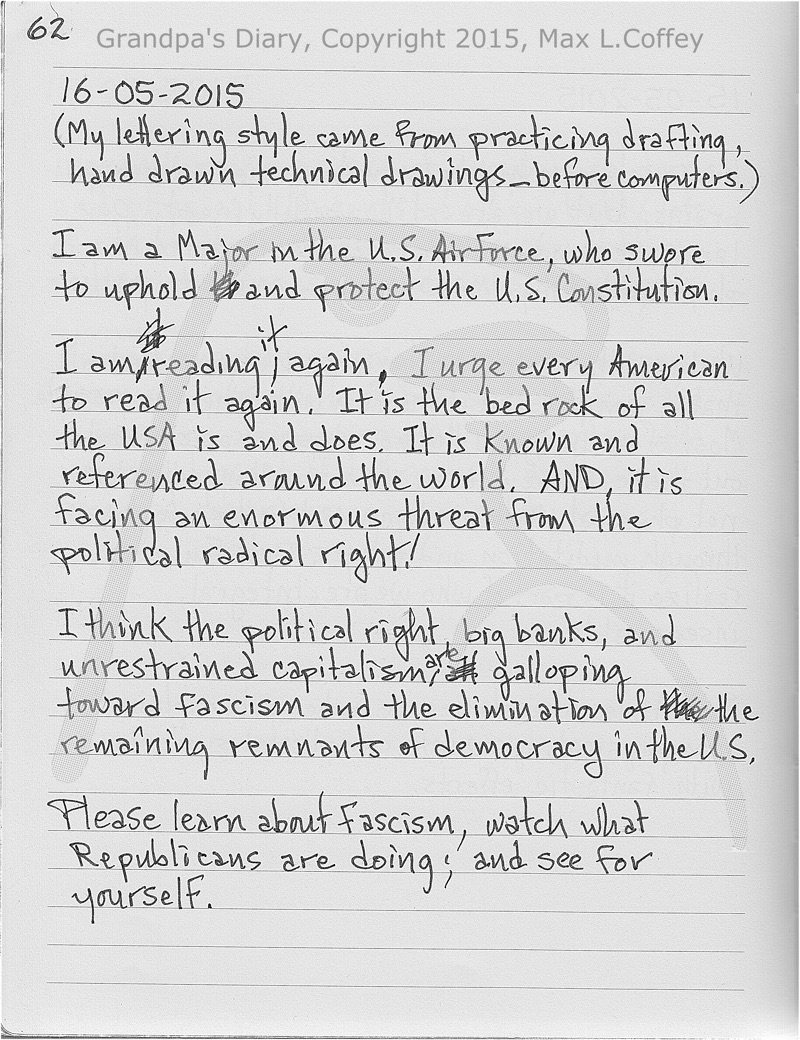 62
Grandpa's Diary, Copyright 2015, Max L.Coffey
16-05-2015
(My lettering style came from practicing drafting,
hand drawn technical drawings - before computers.)
I am a Major in the U.S. Air Force, who swore
to uphold and protect the U.S. Constitution.
it
I am reading again. I urge every American
to read it again. It is the bed rock of all
the USA is and does. It is known and
referenced around the world. AND, it is
facing an enormous threat from the
political radical right!
I think the political right, big banks, and
unrestrained capitalism, are galloping
toward fascism and the elimination of the
remaining remnants of democracy in the U.S.
Please learn about fascism, watch what
Republicans are doing; and see for
yourself.